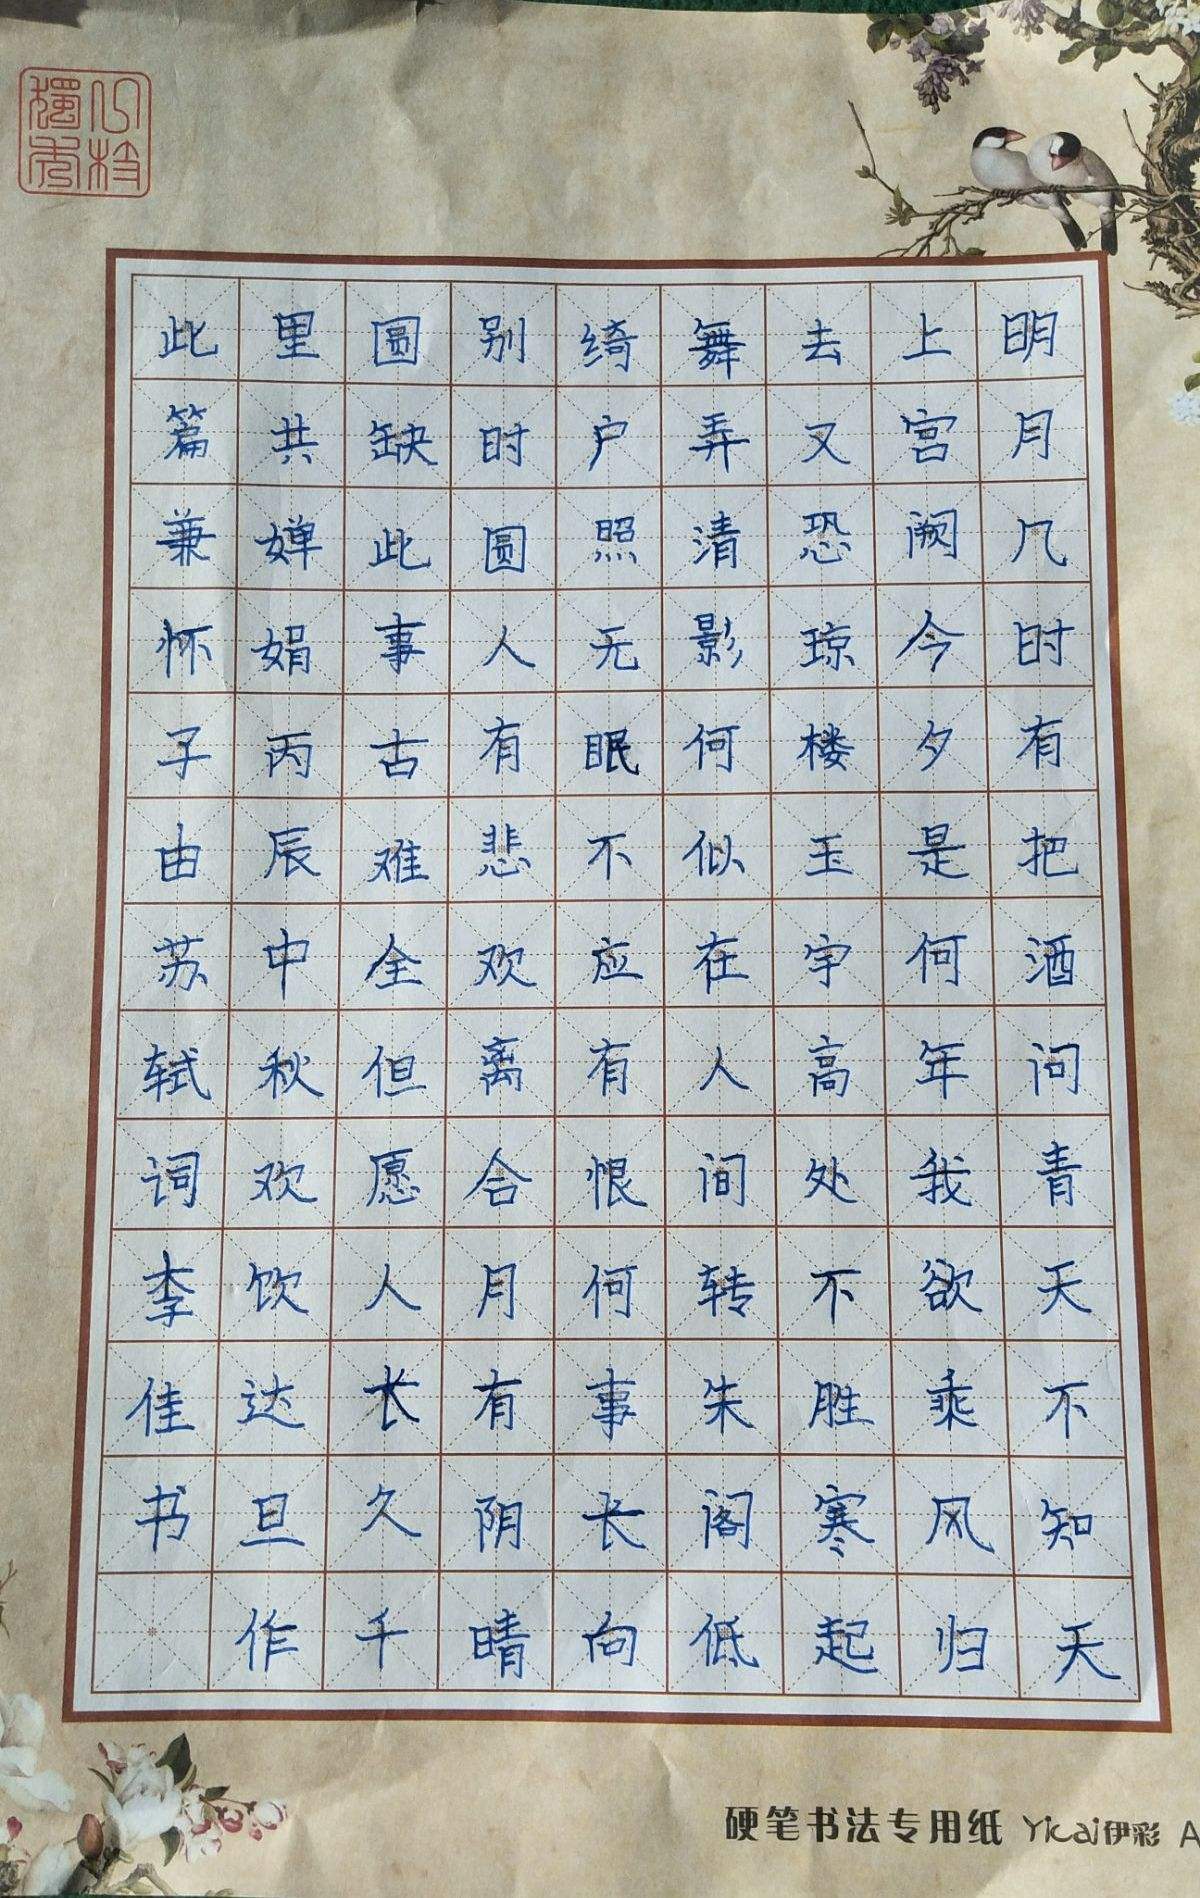 明月几时有把酒问青天不知天
上宫阙今夕是何年我欲乘风归
去又恐琼楼玉宇高处不胜寒起
舞弄清影何似在人间转朱阁低
绮户照无眠不应有恨何事长向
别时圆人有悲欢离合月有阴晴
圆缺此事古难全但愿人长久千
里共婵娟丙辰中秋欢饮达旦作
此篇兼怀子由苏轼词李佳书
硬笔书法专用纸 Yicai伊彩 A